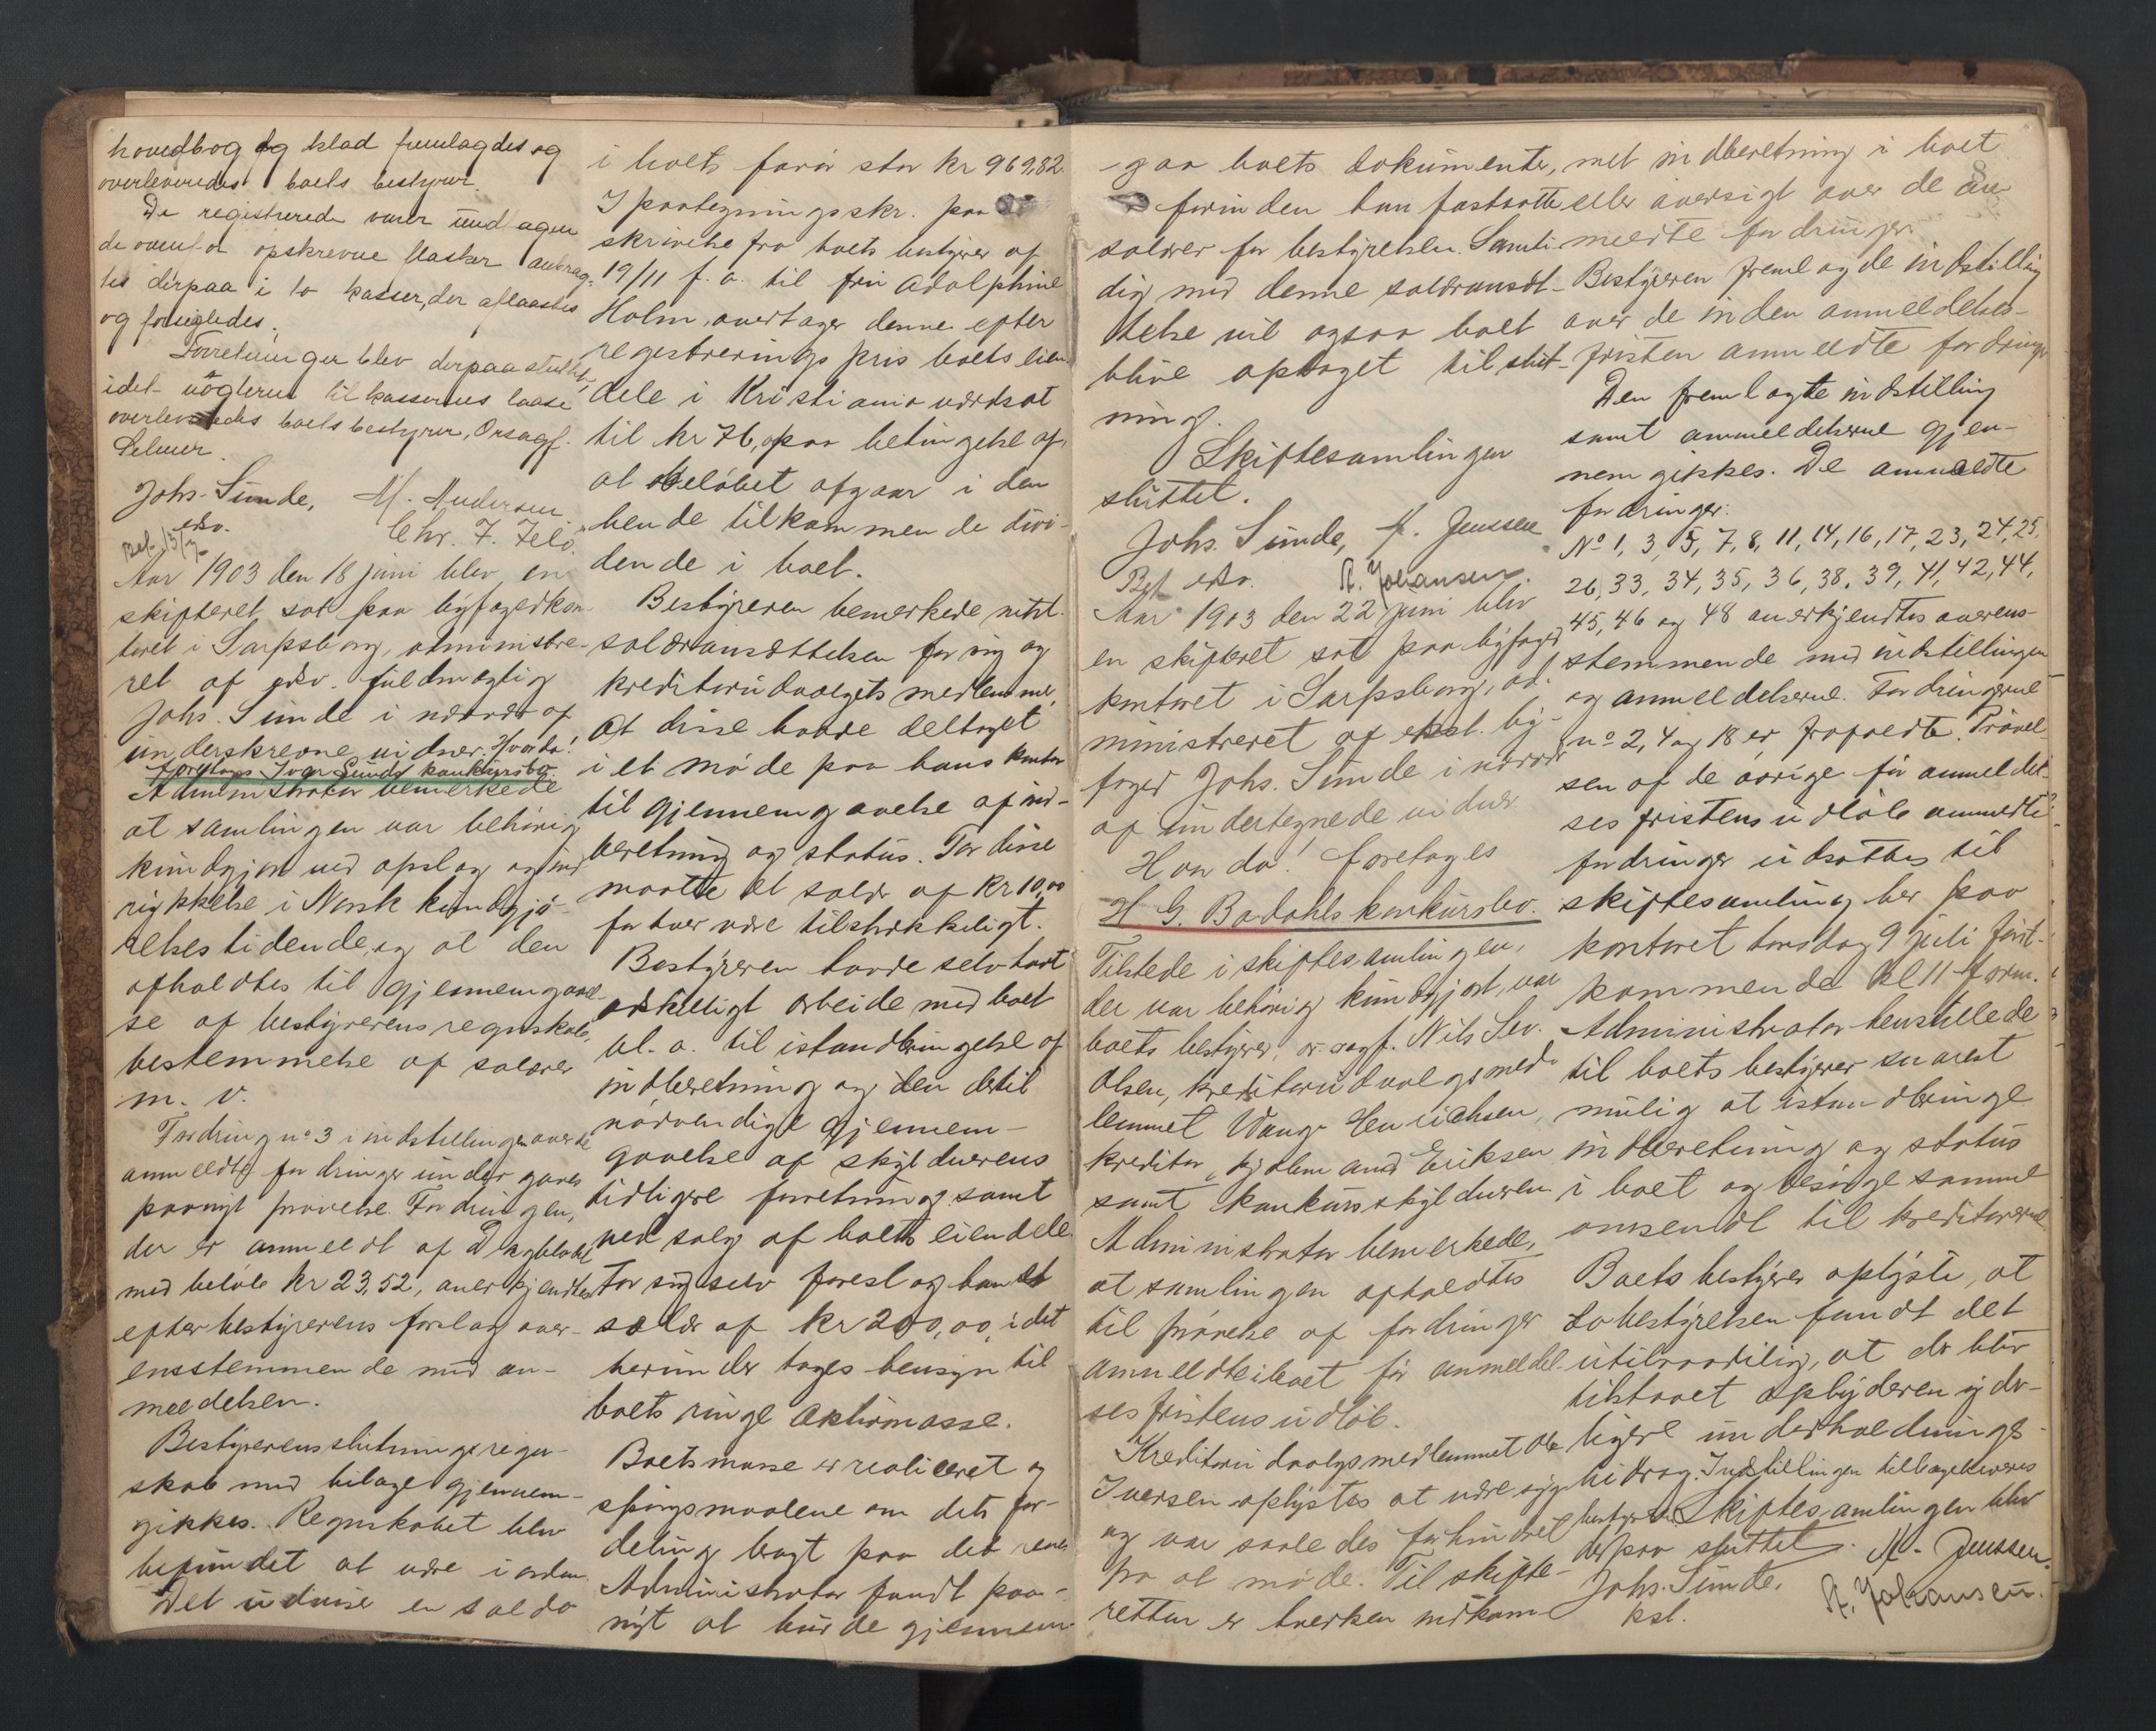 hovedbog og klad fremlagdes og
overleveredes boets bestyrer.
De registrerede varer undtagen
de ovenfor opskrevne flasker anbrag-
tes derpaa i to kasser, der aflaastes
og forsegledes.
Forretningen blev derpaa sluttet,
idet nøglerne til kassernes laase
overleveredes boets bestyrer, Orsagf.
Selmer.
Johs. Sunde, M. Andersen
edsv. Chr. F.
Bet. 13/7
Aar 1903 den 18 juni blev en
skifteret sat paa byfogedkon-
toret i Sarpsborg, administre-
ret af edsv. fuldmægtig
Johs. Sunde i nærvær af
underskrevne vidner. Hvorda!
Foretoges Ivar Sunds konkursbo.
Administrator bemerkede
at samlingen var behørig
kundgjort ved opslag og ind-
rykkelse i Norsk kundgjø-
relsestidende, og at den
afholdtes til gjennemgaael-
se af bestyrerens regnskab,
bestemmelse af salærer
m. v.
Fordring no 3 i indstillingen over de
anmeldte fordringer undergaves
paanyt prøvelse. Fordringen,
der er anmeldt af Dagbladet
med beløb kr 23,52, anerkjendtes
efter bestyrerens forslag over-
ensstemmende med an-
meldelsen.
Bestyrerens slutningsregn-
skab med bilage gjennem-
gikkes. Regnskabet blev
befundet at være i orden.
Det udviser en saldo
i boets favør stor kr 969,82.
I paategningsskr. paa
skrivelse fra boets bestyrer af
19/11 f. a. til fru Adolphine
Holm, overtager denne efter
registreringspris boets eien-
dele i Kristiania værdsat
til kr 76, paa betingelse af,
at beløbet afgaar i den
hende tilkommende divi-
dende i boet.
Bestyreren bemerkede vedr.
salæransættelsen for sig og
kreditorudvalgets medlemmer,
at disse havde deltaget
i et møde paa hans kontor
til gjennemgaaelse af ind-
beretning og status. For disse
maatte et salær af kr 10,00
for hver være tilstrækkeligt.
Bestyreren havde selv havt
adskilligt arbeide med boet
bl. a. til istandbringelse af
indberetning og den dertil
nødvendige gjennem-
gaaelse af skyldnerens
tidligere forretning samt
ved salg af boets eiendele.
For sig selv foreslog han et
salær af kr 200,00, idet
herunder toges hensyn til
boets ringe aktivmasse.
Boets masse er realiceret og
spørgsmaalene om dets for-
deling bragt paa det rene.
Administrator fandt paa-
nyt at burde gjennem-
gaa boets dokumenter,
forinden han fastsatte
salærer for bestyrelsen. Samti-
dig med denne salæransæt-
telse vil ogsaa boet
blive optaget til slut-
ning.
Skiftesamlingen
sluttet.
Johs. Sunde, M. Jenssen
Bet edsv. A. Johansen.
Aar 1903 den 22 juni blev
en skifteret sat paa byfoged
kontoret i Sarpsborg, ad-
ministreret af kst. by-
foged Johs. Sunde i nærvær
af undertegnede vidner
Hvorda! foretoges
H G. Bodahls konkursbo.
Tilstede i skiftesamlingen,
der var behørig kundgjort, var
boets bestyrer, or. sagf. Nils Sev.
Olsen, kreditorudvalgsmed-
lemmet Wang Henrichsen,
kreditor, kjøbmand Eriksen
samt konkursskyldneren.
Administrator bemerkede,
at samlingen afholdtes
til prøvelse af fordringer
anmeldte i boet før anmeldel-
sesfristens udløb.
Kreditorudvalgsmedlemmet Ole
Iversen oplystes at være syg
og var saaledes forhindret
fra at møde. Til skifte-
retten er hverken indkom-
met indberetning i boet
eller oversigt over de an-
meldte fordringer.
Bestyreren fremlagde indstilling
over de inden anmeldelses-
fristen anmeldte fordringer
Den fremlagte indstilling
samt anmeldelserne gjen-
nemgikkes. De anmeldte
fordringer:
No 1, 3, 5, 7, 8, 11, 14, 16, 17, 23, 24, 25,
26, 33, 34, 35, 36, 38, 39, 41, 42, 44,
45, 46 og 48 anerkjendtes overens-
stemmende med indstillingen
og anmeldelserne. Fordringerne
no 2, 4 og 18 er frafaldte. Prøvel-
sen af de øvrige før anmeldel-
sesfristens udløb anmeldte
fordringer udsattes til
skiftesamling her paa
kontoret torsdag 9 juli først-
kommende kl 11 form.
Administrator henstillede
til boets bestyrer snarest
mulig at istandbringe
indberetning og status
i boet og besørge samme
omsendt til kreditorerne
Boets bestyrer oplyste, at
bobestyrelsen fandt det
utilraadelig, at der blev
tilstaaet opbyderen yder-
ligere underholdnings-
bidrag. Indstillingen tilbageleveres
bestyreren. Skiftesamlingen blev
derpaa sluttet. M. Jenssen.
Johs. Sunde, A. Johansen.
kst.